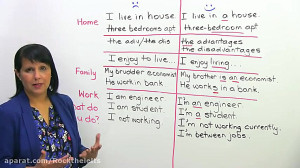 Home
I live in house
three bedrooms apt
the adv/the dis
I enjoy to live...
Family
My brudder economist
He work in bank
Work
I am engineer
I am student
I not working
hat do
u do?
I live in a house
three-bedroom apt
the advantages
the disadvantages
I enjoy living...
My brother is an economist
He works in a bank.
I'm an engineer
I'm a student
I'm not working currently.
I'm between jobs.
aparat.com/Rocktheielts